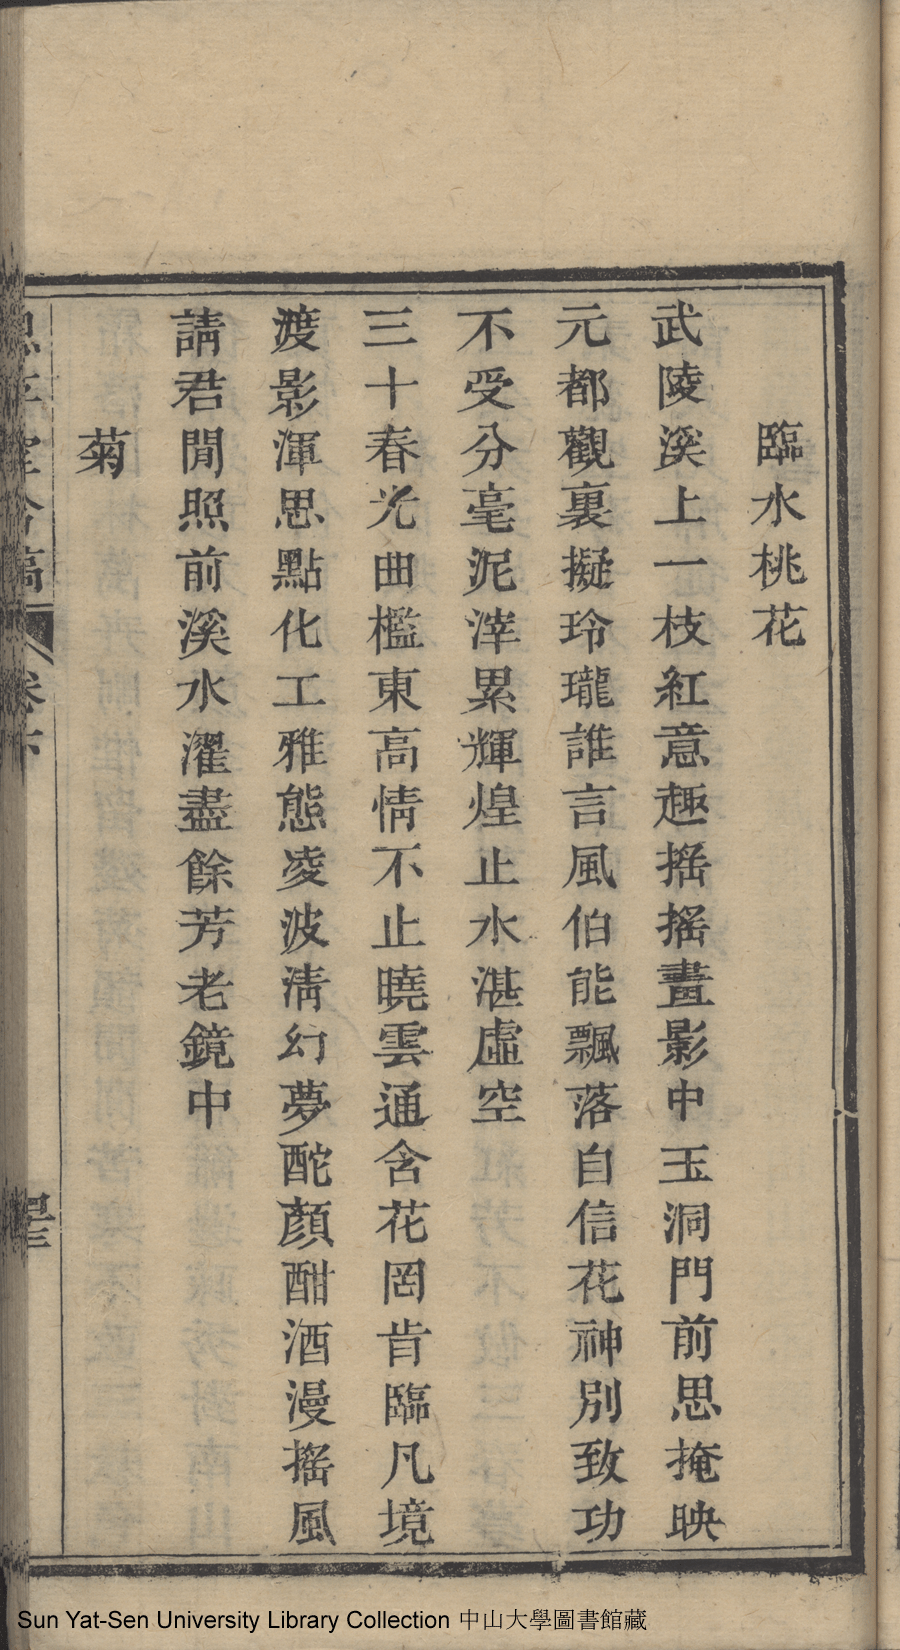 臨水桃花
武陵溪上一枝紅意趣摇摇畫影中玉洞門前思掩映
元都觀裏擬玲瓏誰言風伯能飄落自信花神別致功
不受分毫泥滓累輝煌止水湛虛空
三十春光曲檻東高情不止曉雲通含花罔肯臨凡境
渡影渾思點化工雅態凌波清幻夢酡顏酣酒漫搖風
請君閒照前溪水濯盡餘芳老鏡中
菊
Sun Yat-Sen University Library Collection 中山大學圖書館藏